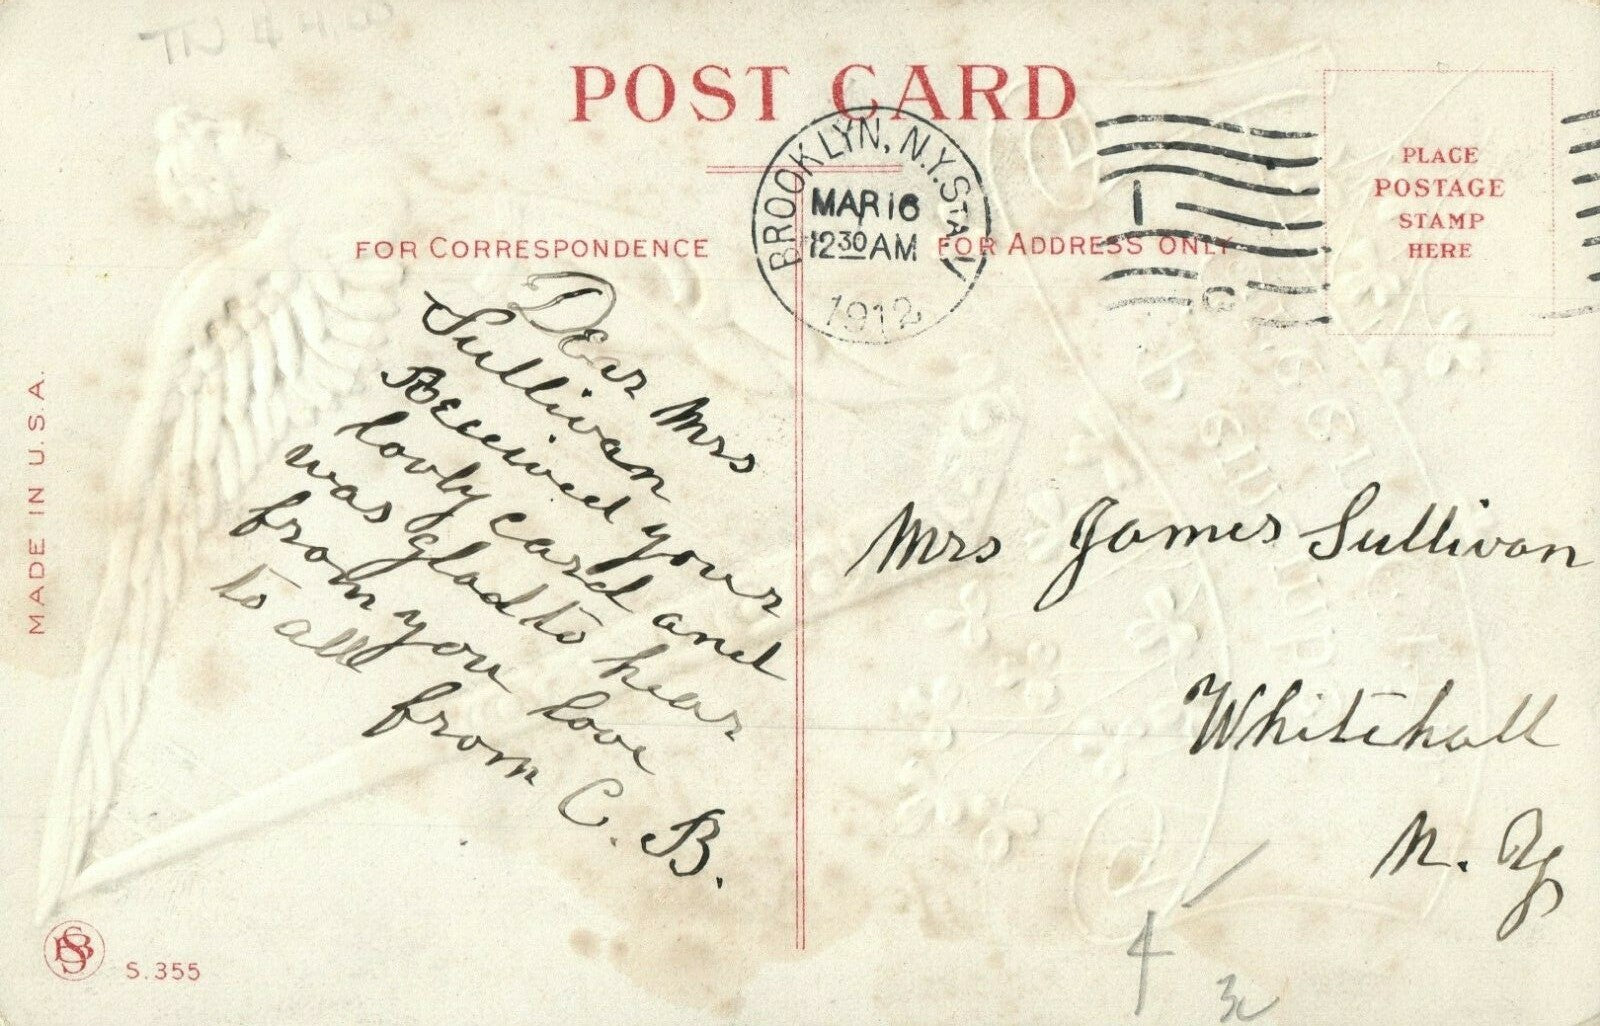 POST CARD
BROOKLYN, N.Y. STA.
MAR 16
12 30 AM
1912
PLACE
POSTAGE
STAMP
HERE
FOR CORRESPONDENCE
FOR ADDRESS ONLY
Dear Mrs
Sullivan
Received your
lovly card and
was glad to hear
from you love
to all
from C. B.
Mrs James Sullivan
Whitehall
N. Y
MADE IN U.S.A.
S. 355
4